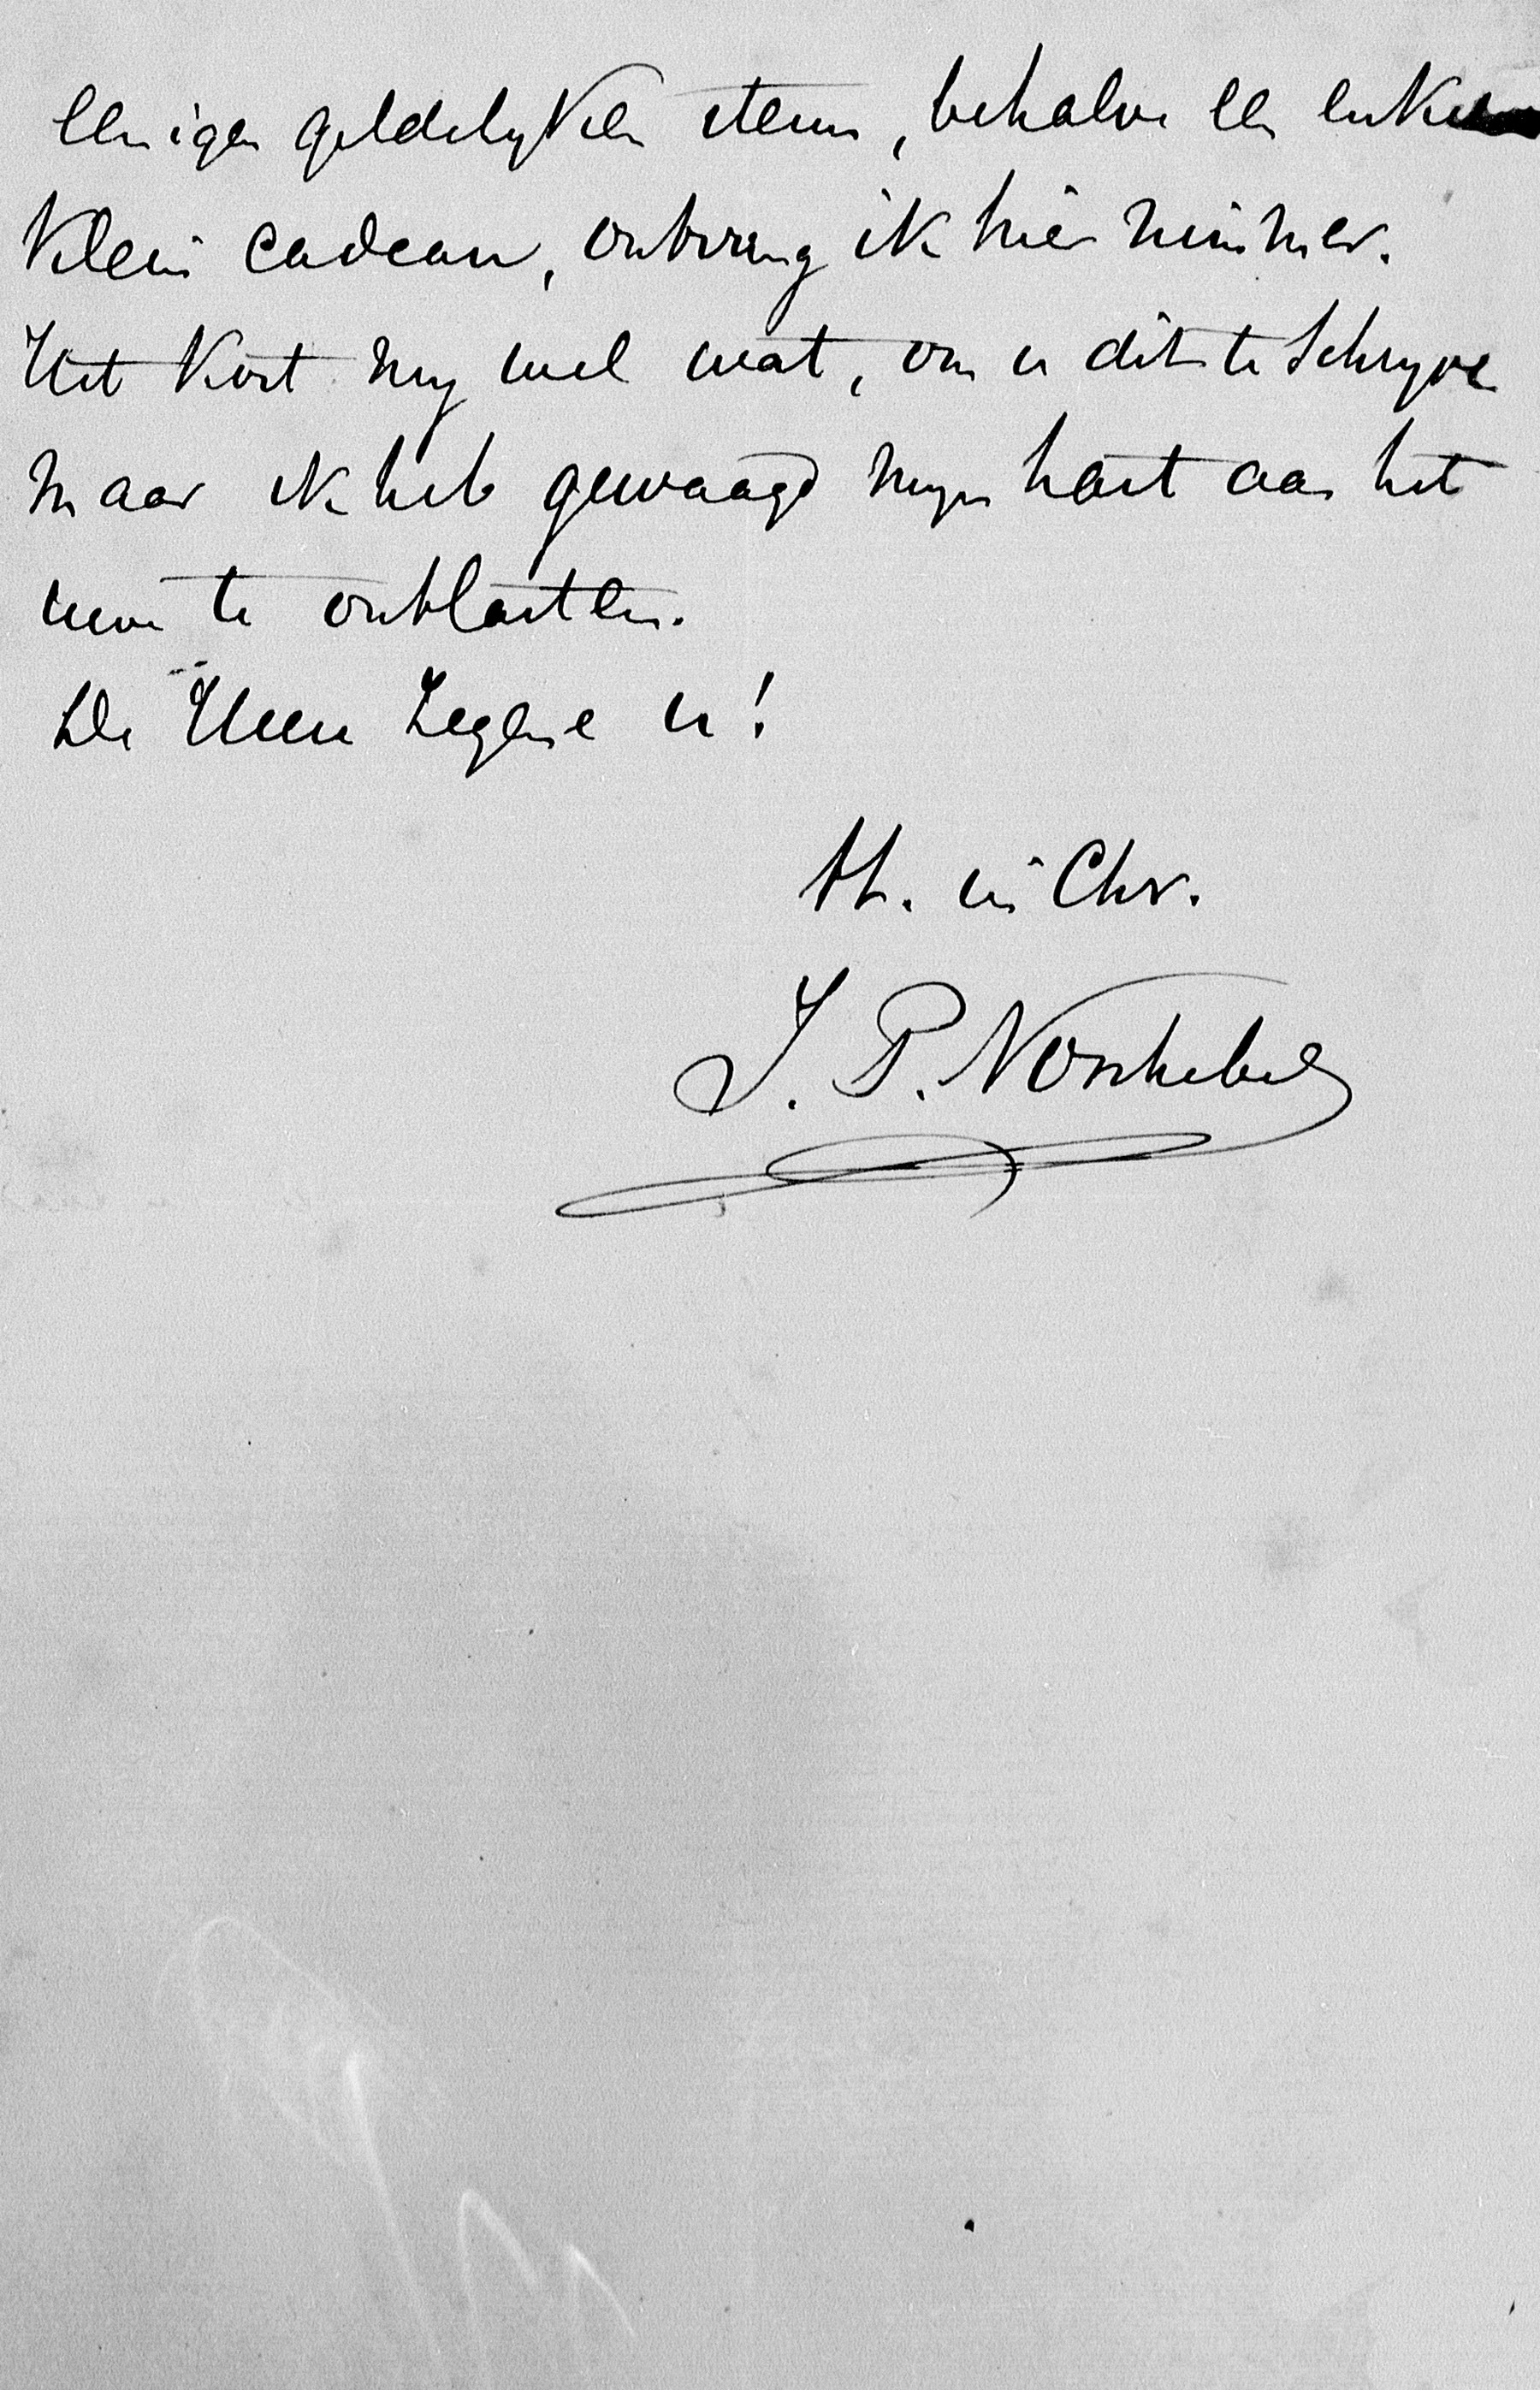 eenigen geldelyken steun, behalve een enkel
klein cadeau, ontvang ik hier nimmer.
Het kost my wel wat, om u dit te schryve
maar ik heb gewaagd myn hart aan het
uwe te ontlasten.
De Heere zegene u!
tt. in Chr.
J. P.